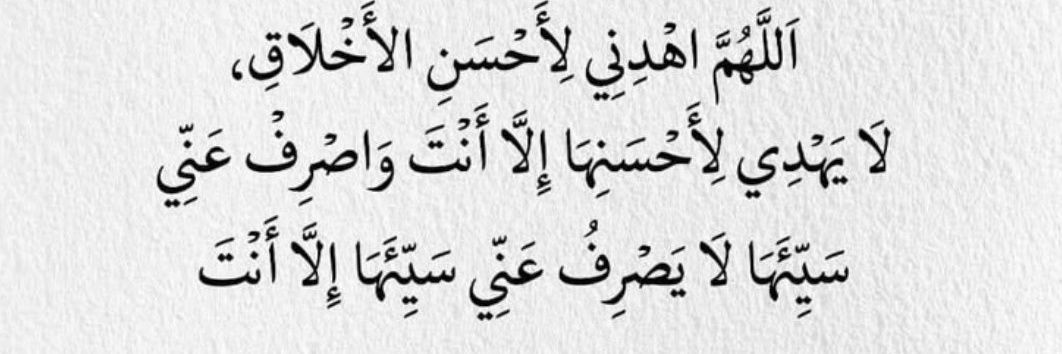 اَللَّهُمَّ اهْدِنِي لِأَحْسَنِ الأَخْلَاقِ،
لَا يَهْدِي لِأَحْسَنِهَا إِلَّا أَنْتَ وَاصْرِفْ عَنِّي
سَيِّئَهَا لَا يَصْرِفُ عَنِّي سَيِّئَهَا إِلَّا أَنْتَ